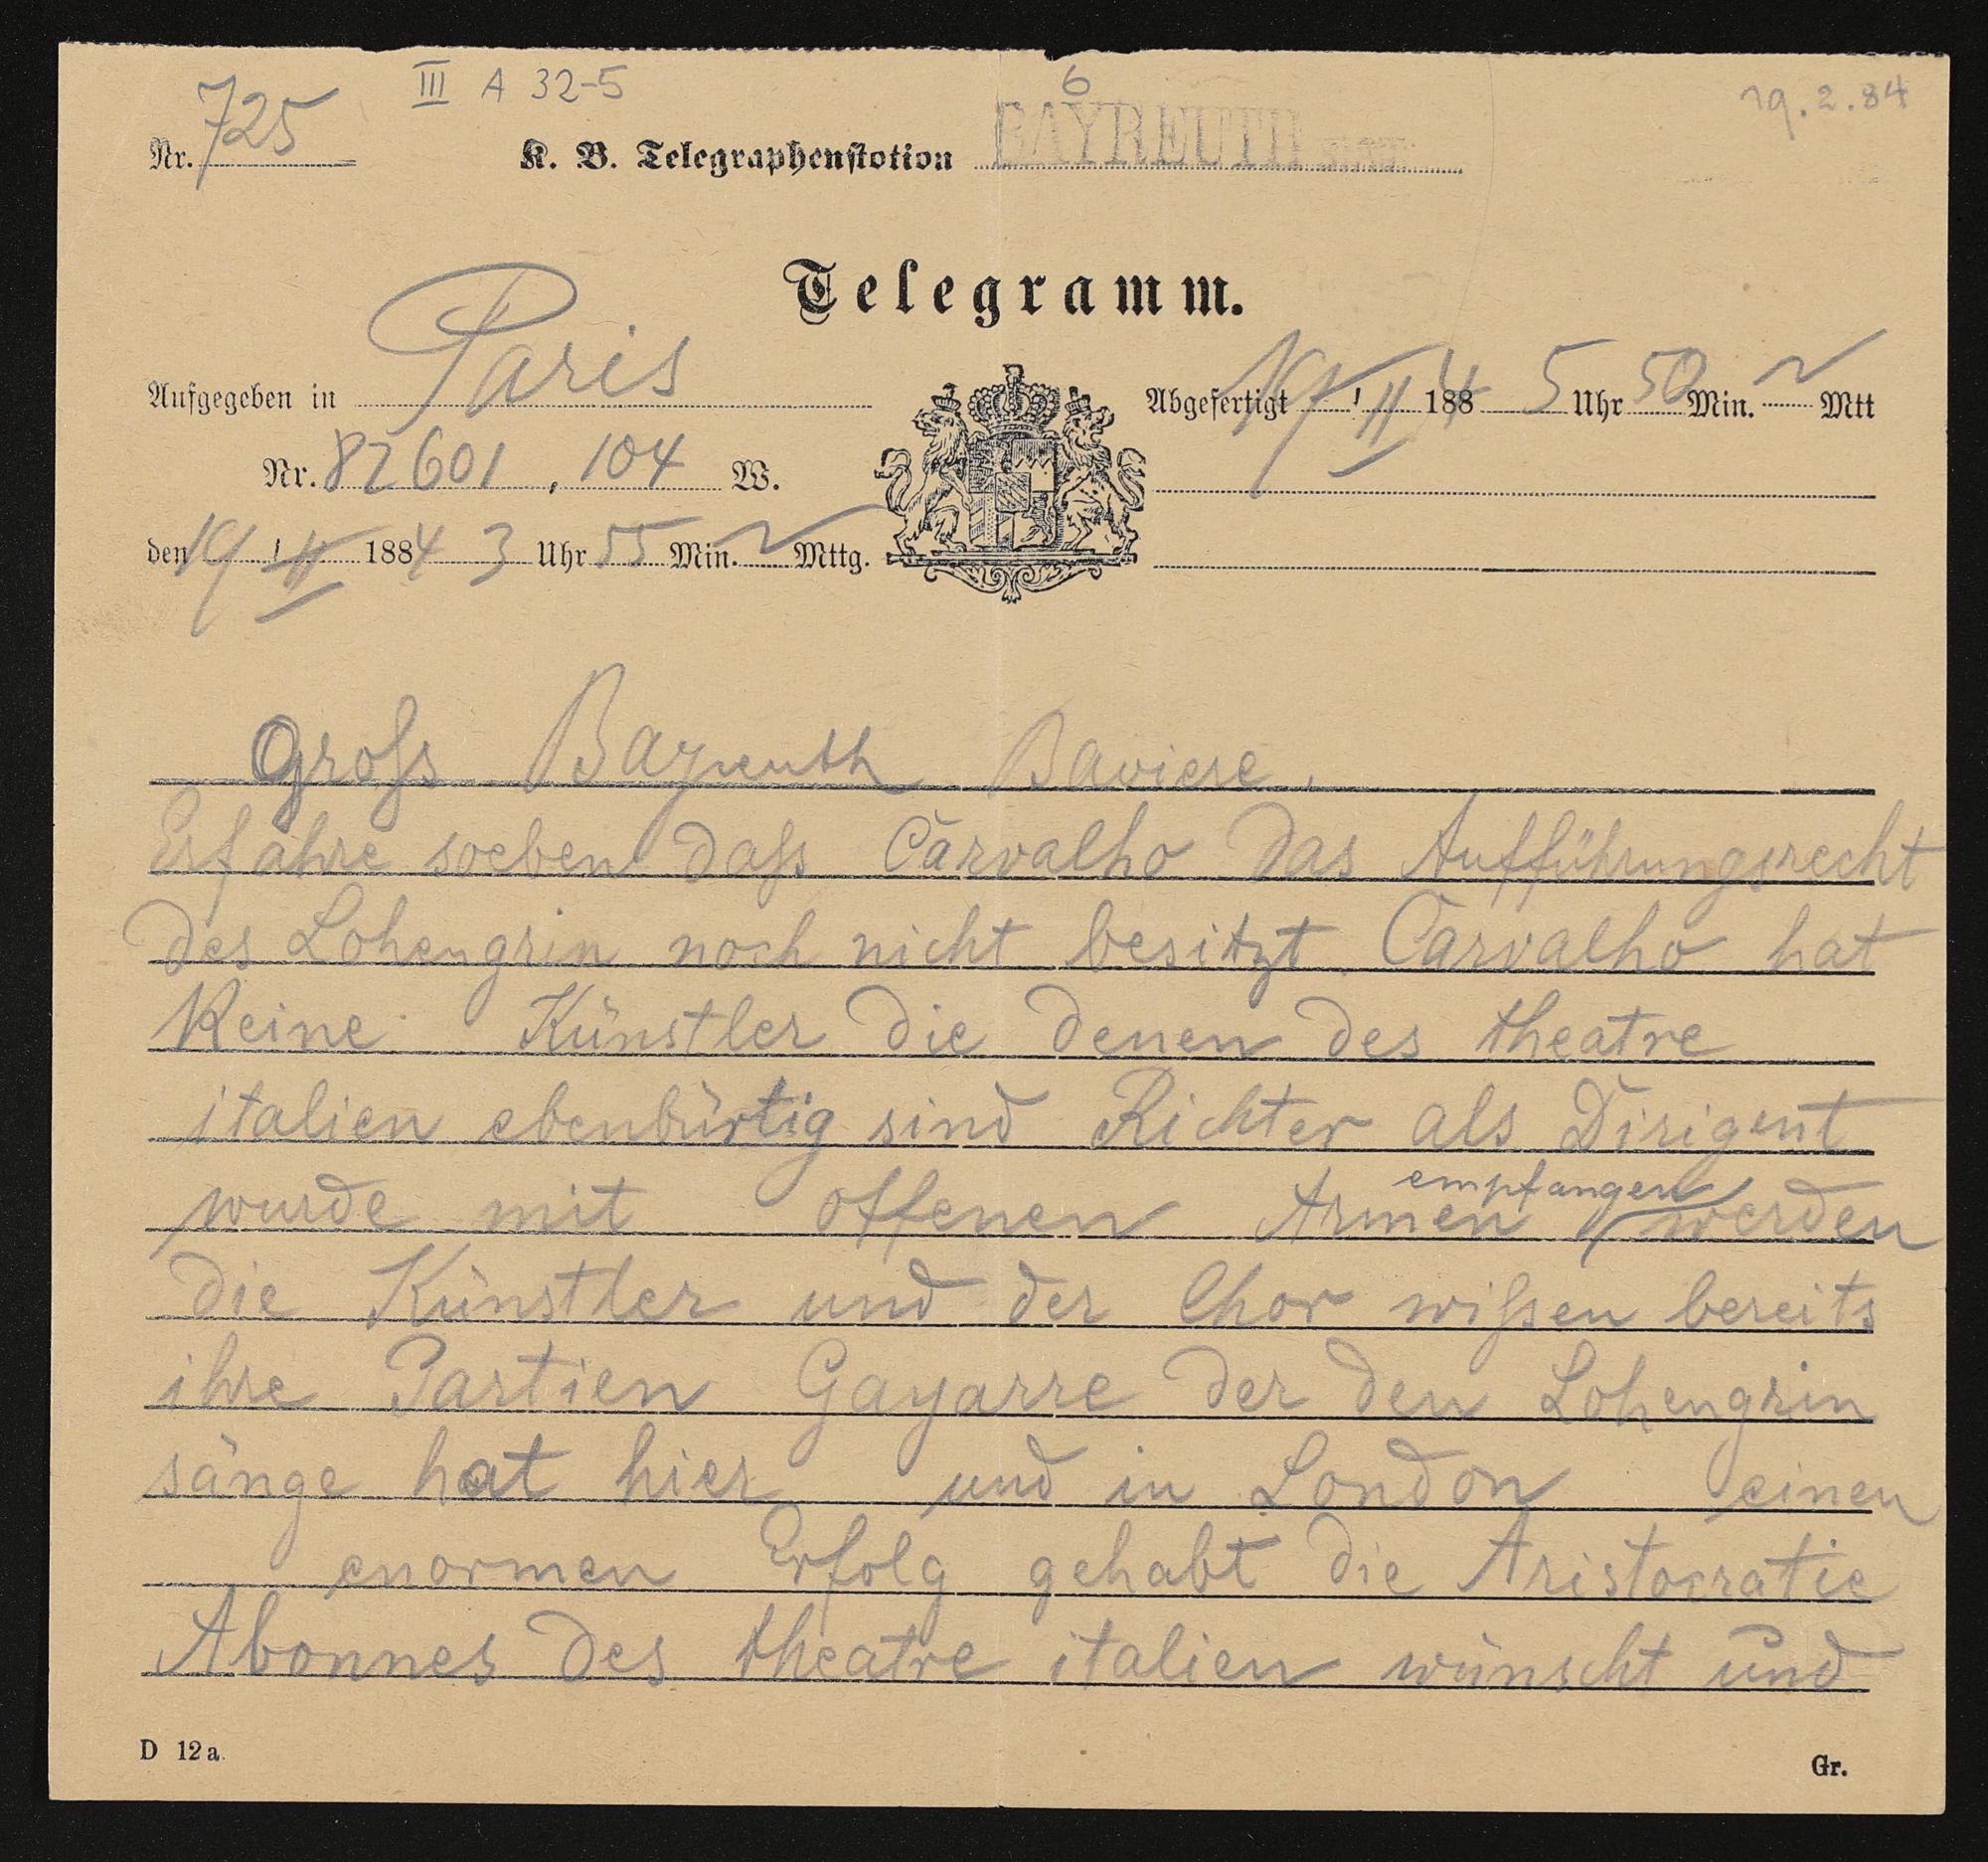 III A 32-5
6
19.2.84
Nr. 725
K. B. Telegraphenstation BAYREUTH
Telegramm.
Aufgegeben in Paris
Nr. 82601, 104 W.
den 19/II 1884 3 Uhr 55 Min. N Mttg.
Abgefertigt 19/II 1884 5 Uhr 50 Min. N Mtt
Gross Bayreuth Baviere.
Erfahre soeben dass Carvalho das Aufführungsrecht
des Lohengrin noch nicht besitzt Carvalho hat
Keine Künstler die denen des theatre
italien ebenbürtig sind Richter als Dirigent
wurde mit offenen Armen empfangen werden
die Künstler und der Chor wissen bereits
ihre Partien Gayarre der den Lohengrin
sänge hat hier und in London einen
enormen Erfolg gehabt die Aristocratie
Abonnes des theatre italien wünscht und
D 12a.
Gr.